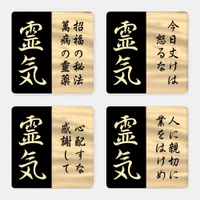 靈気
招福の秘法
萬病の霊薬
靈気
今日丈けは
怒るな
靈気
心配すな
感謝して
靈気
人に親切に
業をはけめ